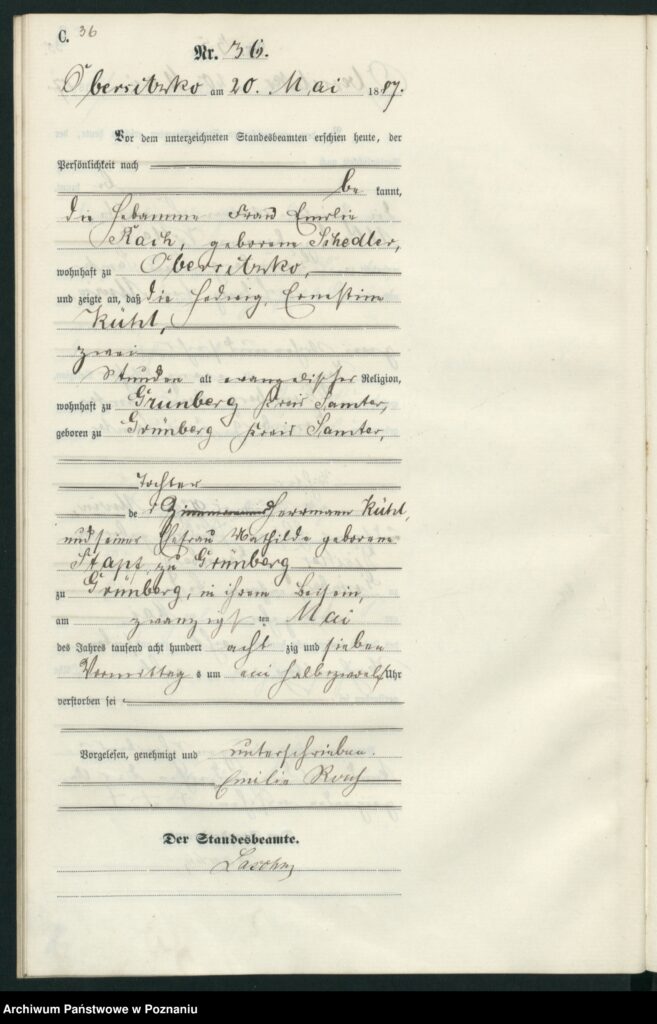 C. 36
Nr. 36.
Obersitzko am 20. Mai 1887.
Vor dem unterzeichneten Standesbeamten erschien heute, der
Persönlichkeit nach
be kannt,
die Hebamme Frau Emilie
geborene Schedler,
wohnhaft zu Obersitzko,
und zeigte an, daß die Hedwig, Ernestine
Kühl,
zwei
Stunden alt evangelischer Religion,
wohnhaft zu Grünberg Kreis Samter,
geboren zu Grünberg Kreis Samter,
Tochter
de s Herrmann Kühl,
und seiner Ehefrau Mathilde geborene
Stapf zu Grünberg
zu Grünberg, in ihrem Beisein,
am zwanzigsten Mai
des Jahres tausend acht hundert acht zig und sieben
Vormittag s um ein halb zwölf Uhr
verstorben sei
Vorgelesen, genehmigt und unterschrieben.
Emilie
Der Standesbeamte.
Archiwum Państwowe w Poznaniu